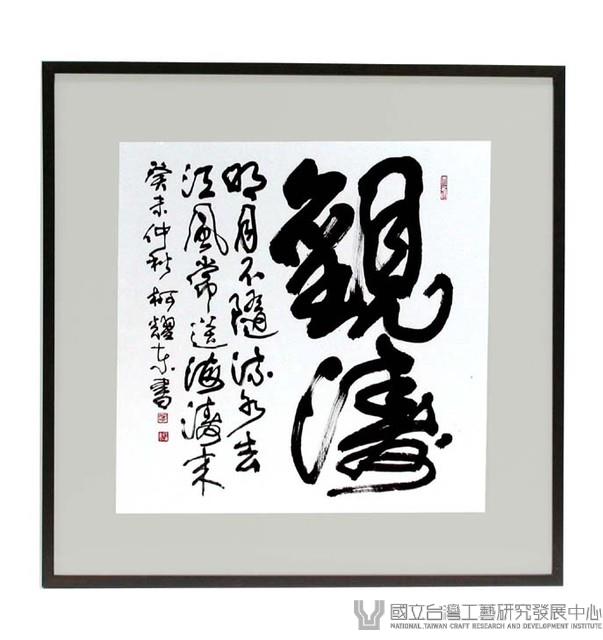 觀濤
明月不隨流水去
江風常送海濤來
癸未仲秋柯耀東書
國立台灣工藝研究發展中心
NATIONAL TAIWAN CRAFT RESEARCH AND DEVELOPMENT INSTITUTE